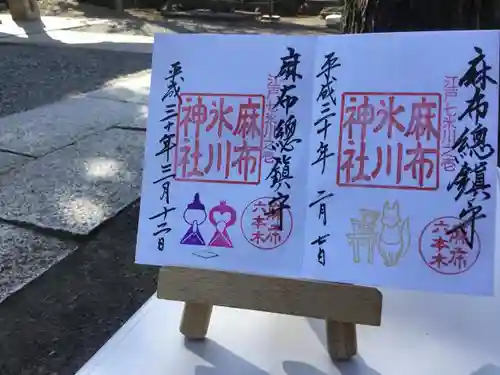 麻布總鎮守
江戸七氷川之壱
麻布
氷川
神社
麻布
六本木
平成三十年三月十二日
麻布總鎮守
江戸七氷川之壱
麻布
氷川
神社
麻布
六本木
平成三十年
二月